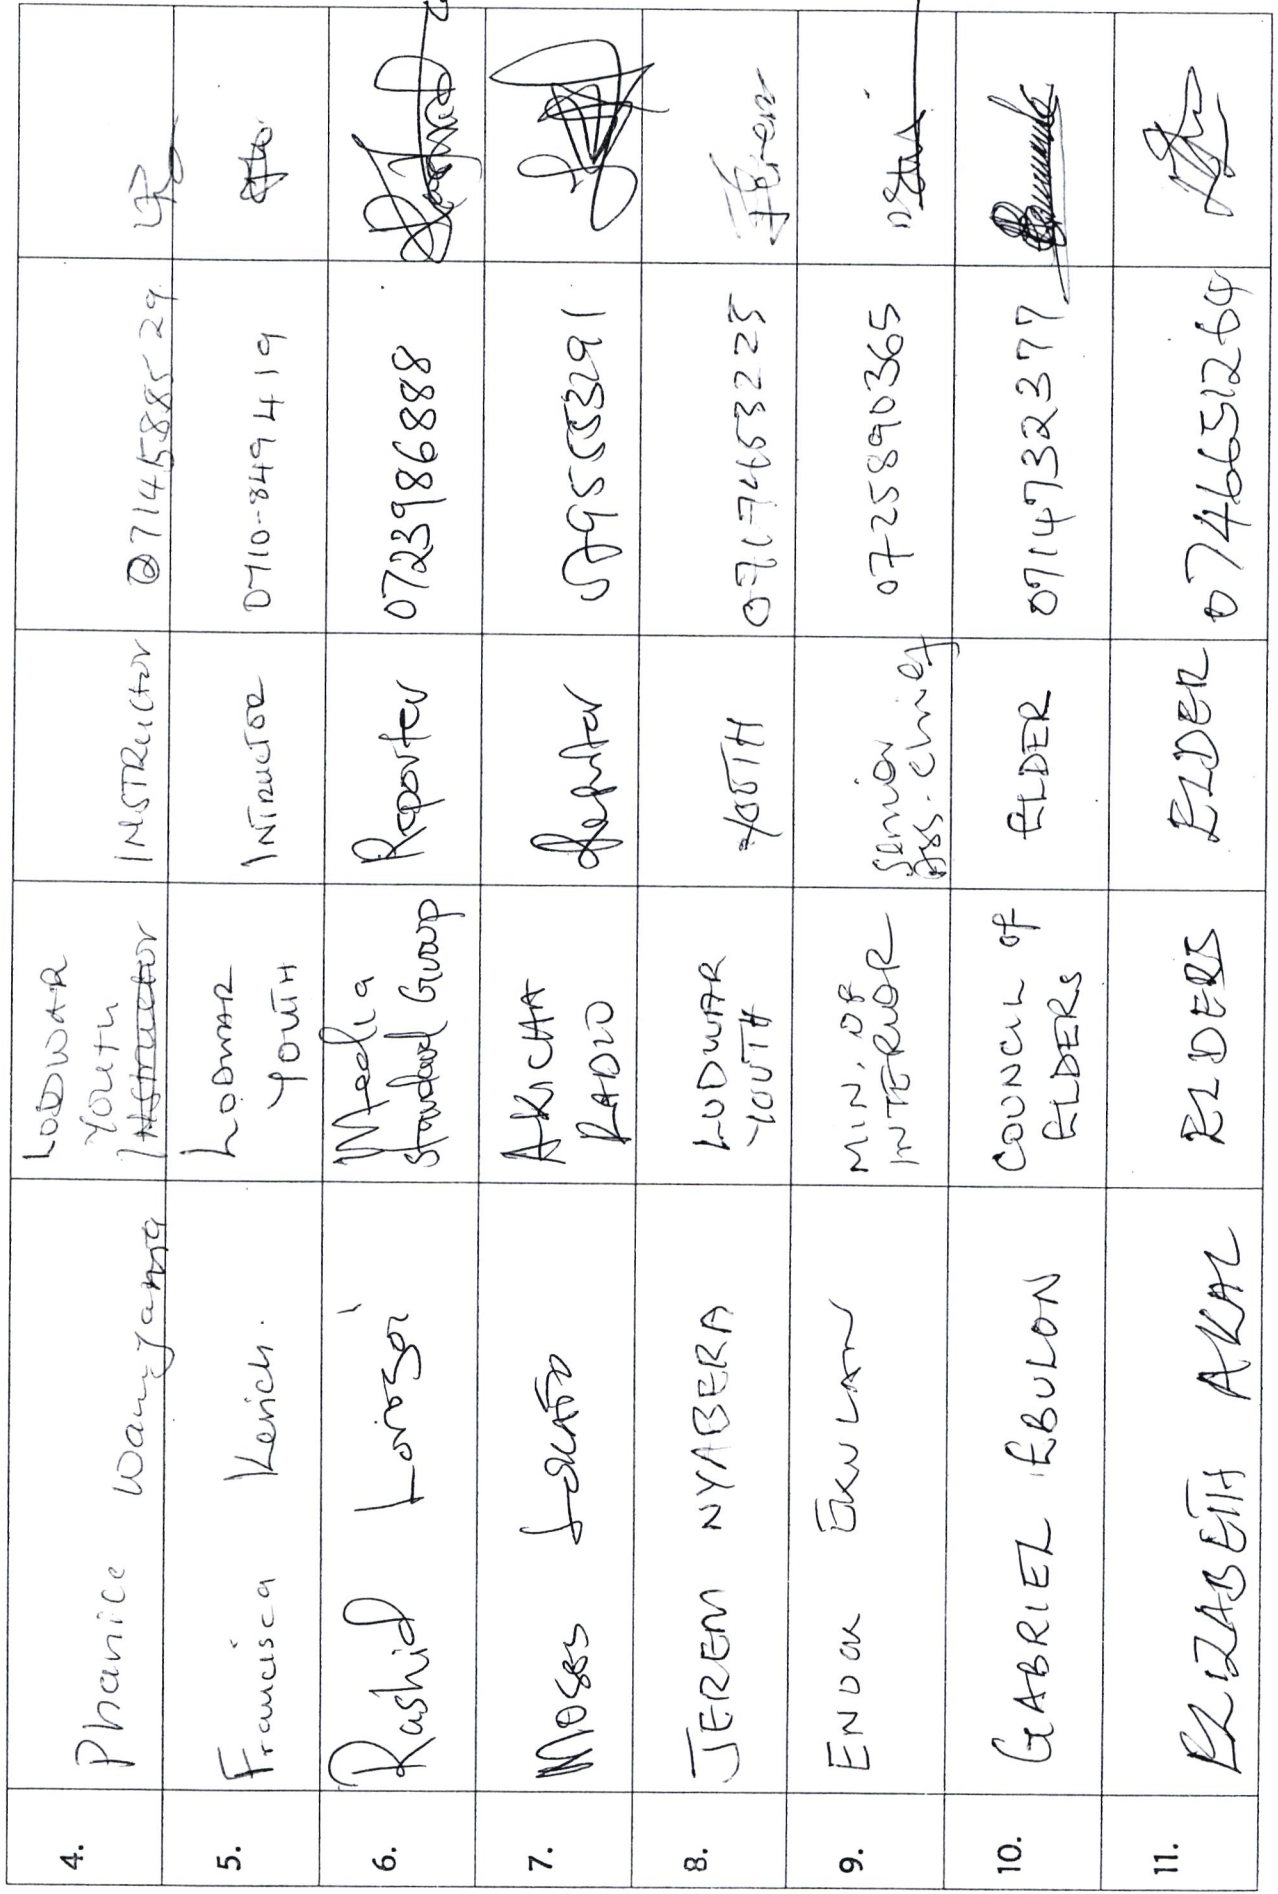 4. Phanice Wanyama LODWAR Youth Instructor INSTRuctor 0714588529
5. Francisca Kerich. LODWAR YOUTH INTRUCTOR 0710-849419
6. Rashid Lorogoi Media Standard Group Reporter 0723986888
7. Moses AKICHA RADIO Reporter 0795553291
8. JEREM NYABERA LODWAR YOUTH YOUTH 0717453223
9. ENOCK EKULAN MIN. OF INTERIOR Senior Ass. Chief 0725890365
10. GABRIEL EBULON COUNCIL of ELDERS ELDER 0714732377
11. ELIZABETH AKAL ELDERS ELDER 0746651264